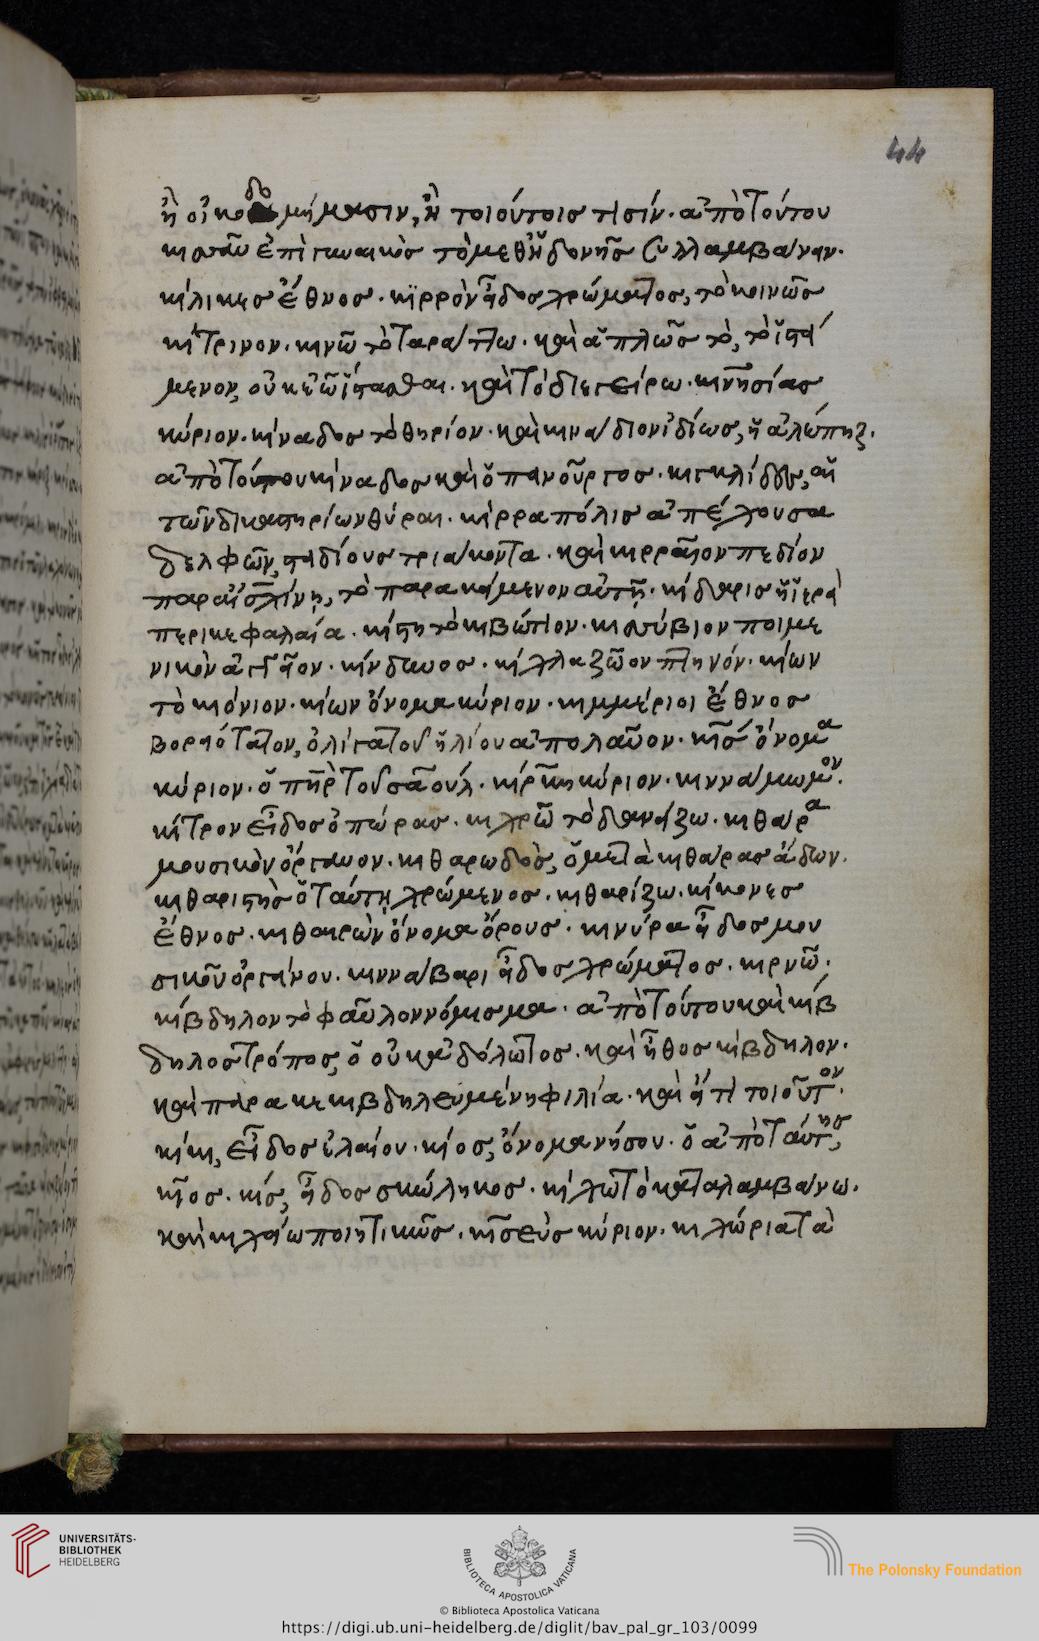 44
ἢ οἰκοδομήμασιν, ἢ τοιούτοις τισίν. ἀπὸ τούτου
κισσᾶν ἐπὶ γυναικὸς τὸ μεθ' ἡδονῆς συλλαμβάνειν.
κίλικες ἔθνος. κιρρὸν εἶδος χρώματος, τὸ κοινῶς
κίτρινον. κινῶ τὸ ταράττω. καὶ ἁπλῶς τὸ, τὸ ἱστά
μενον, οὐκ ἐῶ ἵστασθαι. καὶ τὸ διεγείρω. κινησίας
κύριον. κίναδος τὸ θηρίον. καὶ κινάδιον ἰδίως, ἡ ἀλώπηξ.
ἀπὸ τούτου κίναδος καὶ ὁ πανοῦργος. κιγκλίδες, αἱ
τῶν δικαστηρίων θύραι. κίρρα πόλις ἀπέχουσα
δελφῶν, σταδίους τριάκοντα. καὶ κιρραῖον πεδίον
τὸ παρακείμενον αὐτῇ. κίδαρις ἡ ἱερὰ
περικεφαλαία. κίστη τὸ κιβώτιον. κισσύβιον ποιμε
νικὸν ἀγγεῖον. κίνδυνος. κίχλα ζῶον πτηνόν. κίων
τὸ κιόνιον. κίων ὄνομα κύριον. κιμμέριοι ἔθνος
βορειότατον, ὀλίγα τοῦ ἡλίου ἀπολαῦον. κὶς ὄνομα
κύριον. ὁ πὴρ τοῦ σαούλ. κίρκη κύριον. κιννάμωμον.
κίτρον εἶδος ὀπώρας. κιχρῶ τὸ δανείζω. κιθάρα
μουσικὸν ὄργανον. κιθαρωδὸς, ὁ μετὰ κιθάρας ἄδων.
κιθαριστὴς ὁ ταύτῃ χρώμενος. κιθαρίζω. κίκονες
ἔθνος. κιθαιρὼν ὄνομα ὄρους. κινύρα εἶδος μου
σικοῦ ὀργάνου. κιννάβαρι εἶδος χρώματος. κιρνῶ.
κίβδηλον τὸ φαῦλον νόμισμα. ἀπὸ τούτου καὶ κίβ
δηλος τρόπος, ὁ οὐκ ἄδολωτος. καὶ ἦθος κίβδηλον.
καὶ κεκιβδηλευμένη φιλία. καὶ εἴ τι τοιοῦτον.
κίκι, εἶδος ἐλαίου. κίος, ὄνομα νήσου. ὁ ἀπὸ ταύτης,
κῖος. κίς, εἶδος σκώληκος. κίχω τὸ καταλαμβάνω.
καὶ κιχαίω ποιητικῶς. κισσεὺς κύριον. κιχώρια τὰ
UNIVERSITÄTS-
BIBLIOTHEK
HEIDELBERG
BIBLIOTECA APOSTOLICA VATICANA
The Polonsky Foundation
© Biblioteca Apostolica Vaticana
https://digi.ub.uni-heidelberg.de/diglit/bav_pal_gr_103/0099